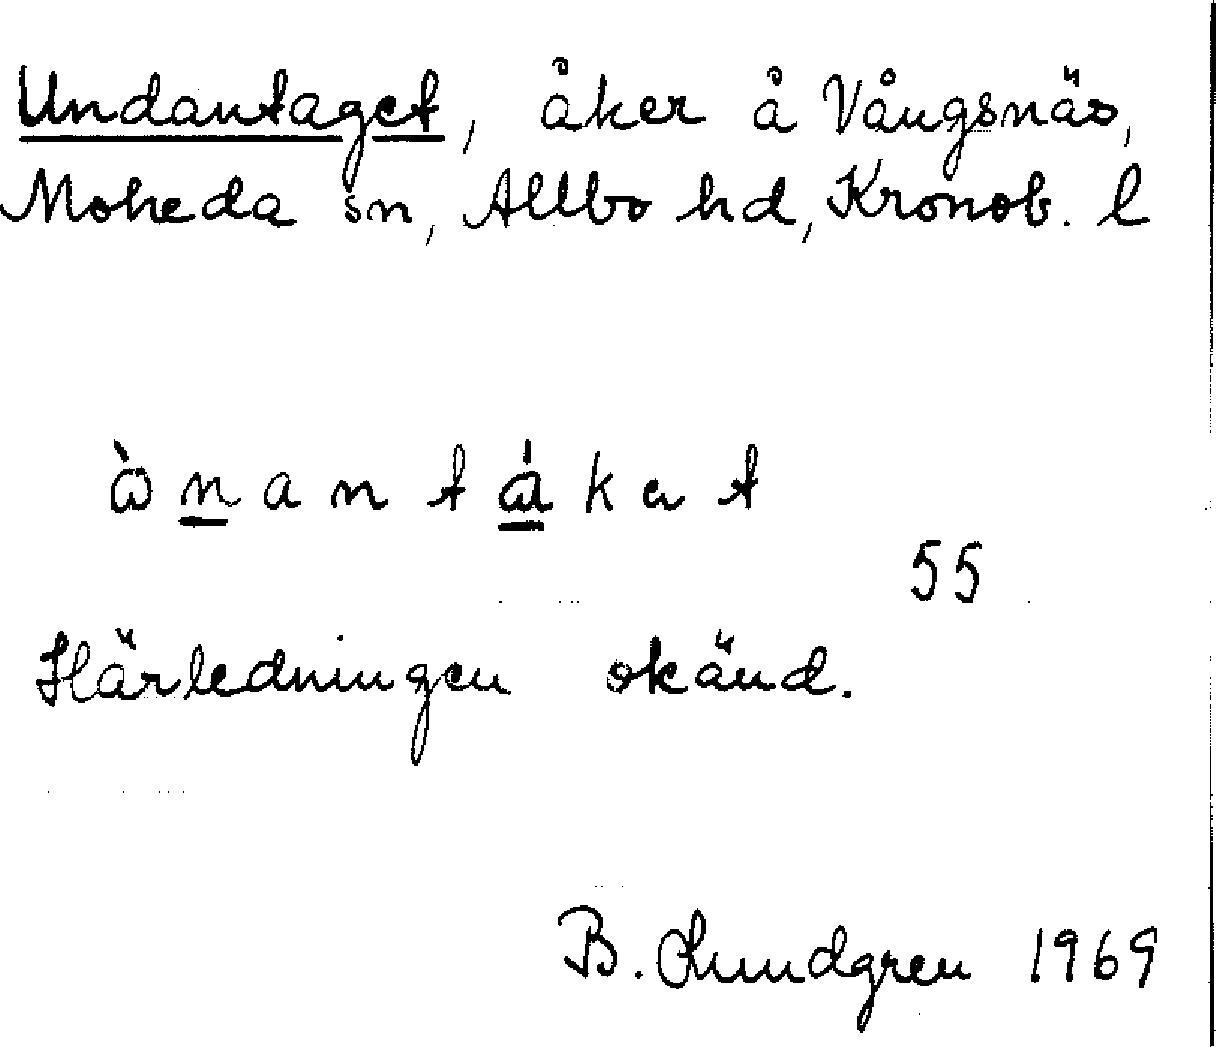 Undantaget, åker å Vångsnäs,
Moheda sn, Allbo hd, Kronob. l
55
Härledningen okänd.
B. Lundgren 1969